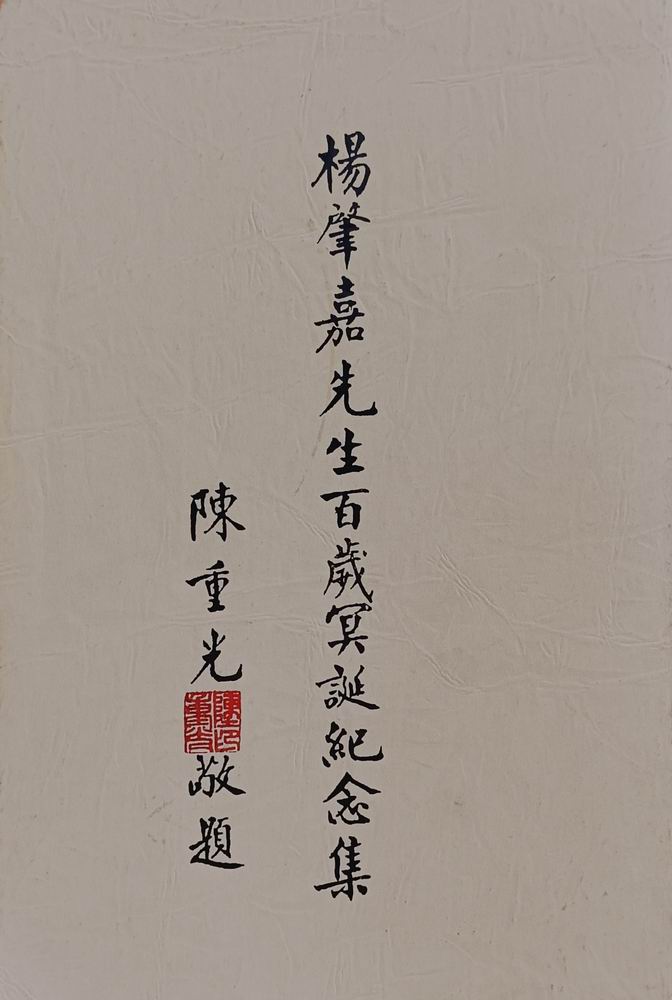 楊肇嘉先生百歲冥誕紀念集
陳重光敬題